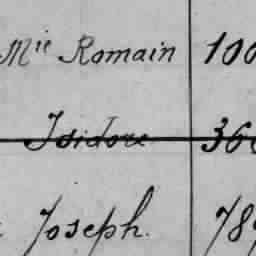 Mie Romain 100
Isidore 360
Joseph. 789